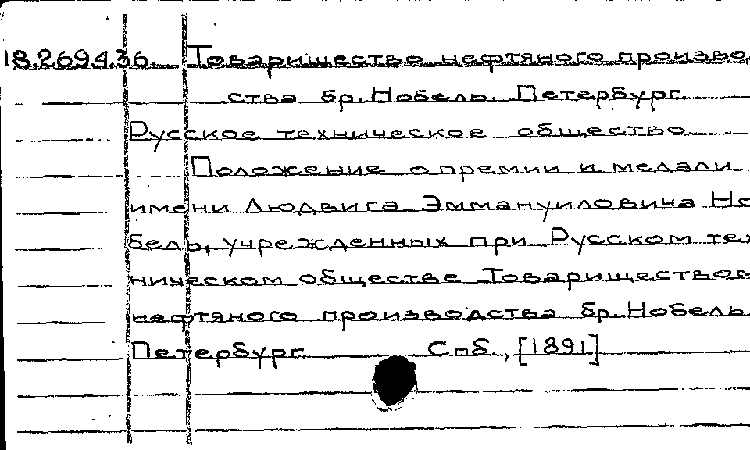 18.269.4.36. Товарищество нефтяного произво
ства бр. Нобель. Петербург.
Русское техническое общество
Положение о премии и медали
имени Людвига Эммануиловича Но
бель, учрежденных при Русском тех
ническом обществе Товариществом
нефтяного производства бр. Нобель.
Петербург. Спб., [1891]